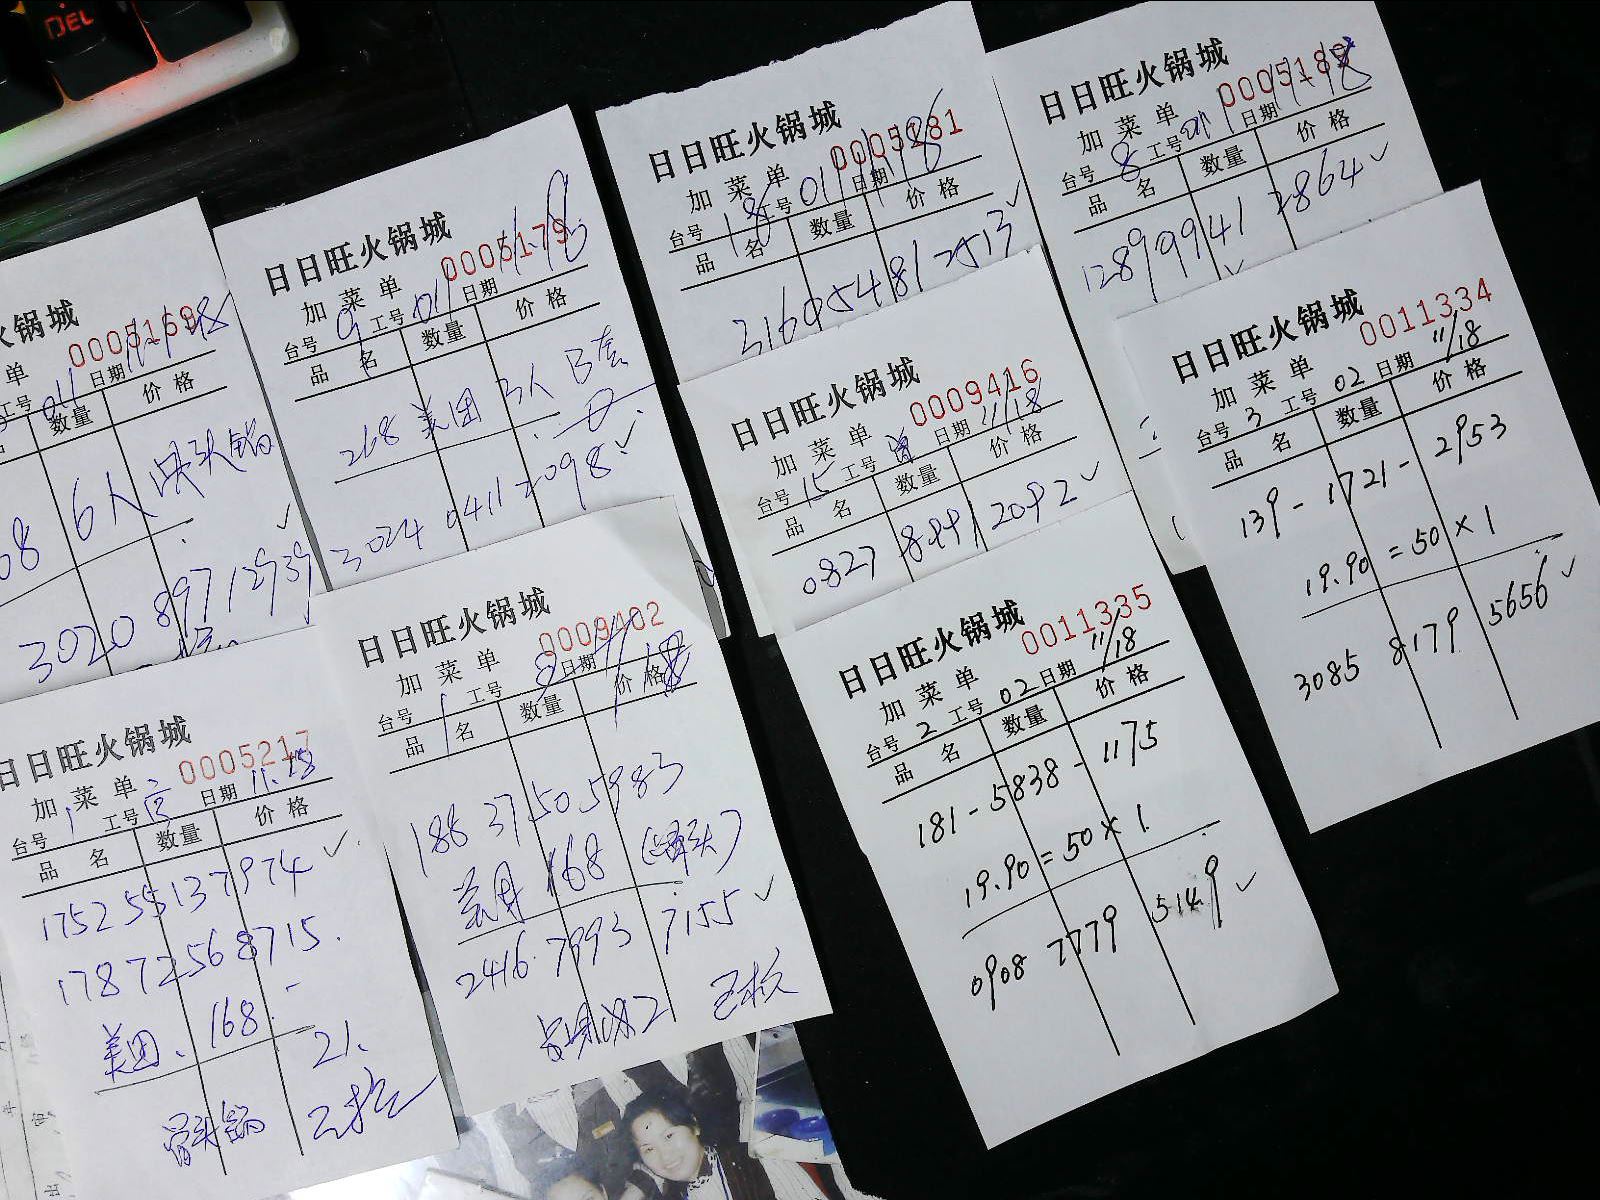 DEL
火锅城
0005169
单
工号 011 日期 11-18
品 数量 价格
08 6人 骨头锅
3020 897 12939
日日旺火锅城
0005179
加菜单
台号 9 工号 011 日期 11.18
品名 数量 价格
268 美团 3人 B套
3024 0411 2098
日日旺火锅城
0005181
加菜单
台号 18 工号 011 日期 11-18
品名 数量 价格
2169548 2513
日日旺火锅城
加菜单
台号 8 工号 011 日期 11-18
品名 数量 价格
1289 9941 2864
日日旺火锅城
0009416
加菜单
台号 15 工号 日期 11/18
品名 数量 价格
0827 8991 2092
日日旺火锅城
0011334
加菜单
台号 3 工号 02 日期 11/18
品名 数量 价格
139-1721-2953
19.90=50×1
3085 8179 5656
日日旺火锅城
0005217
加菜单
台号 1 工号 日期 11.18
品名 数量 价格
175255137974
17872568715.
美团、168.-
21.
骨头锅
日日旺火锅城
0009402
加菜单
台号 1 工号 日期
品名 数量 价格
188 3750 5983
美团 168 (骨头)
2416 7993 7155
日日旺火锅城
0011335
加菜单
台号 2 工号 02 日期 11/18
品名 数量 价格
181-5838-1175
19.90=50×1
0908 7779 5149